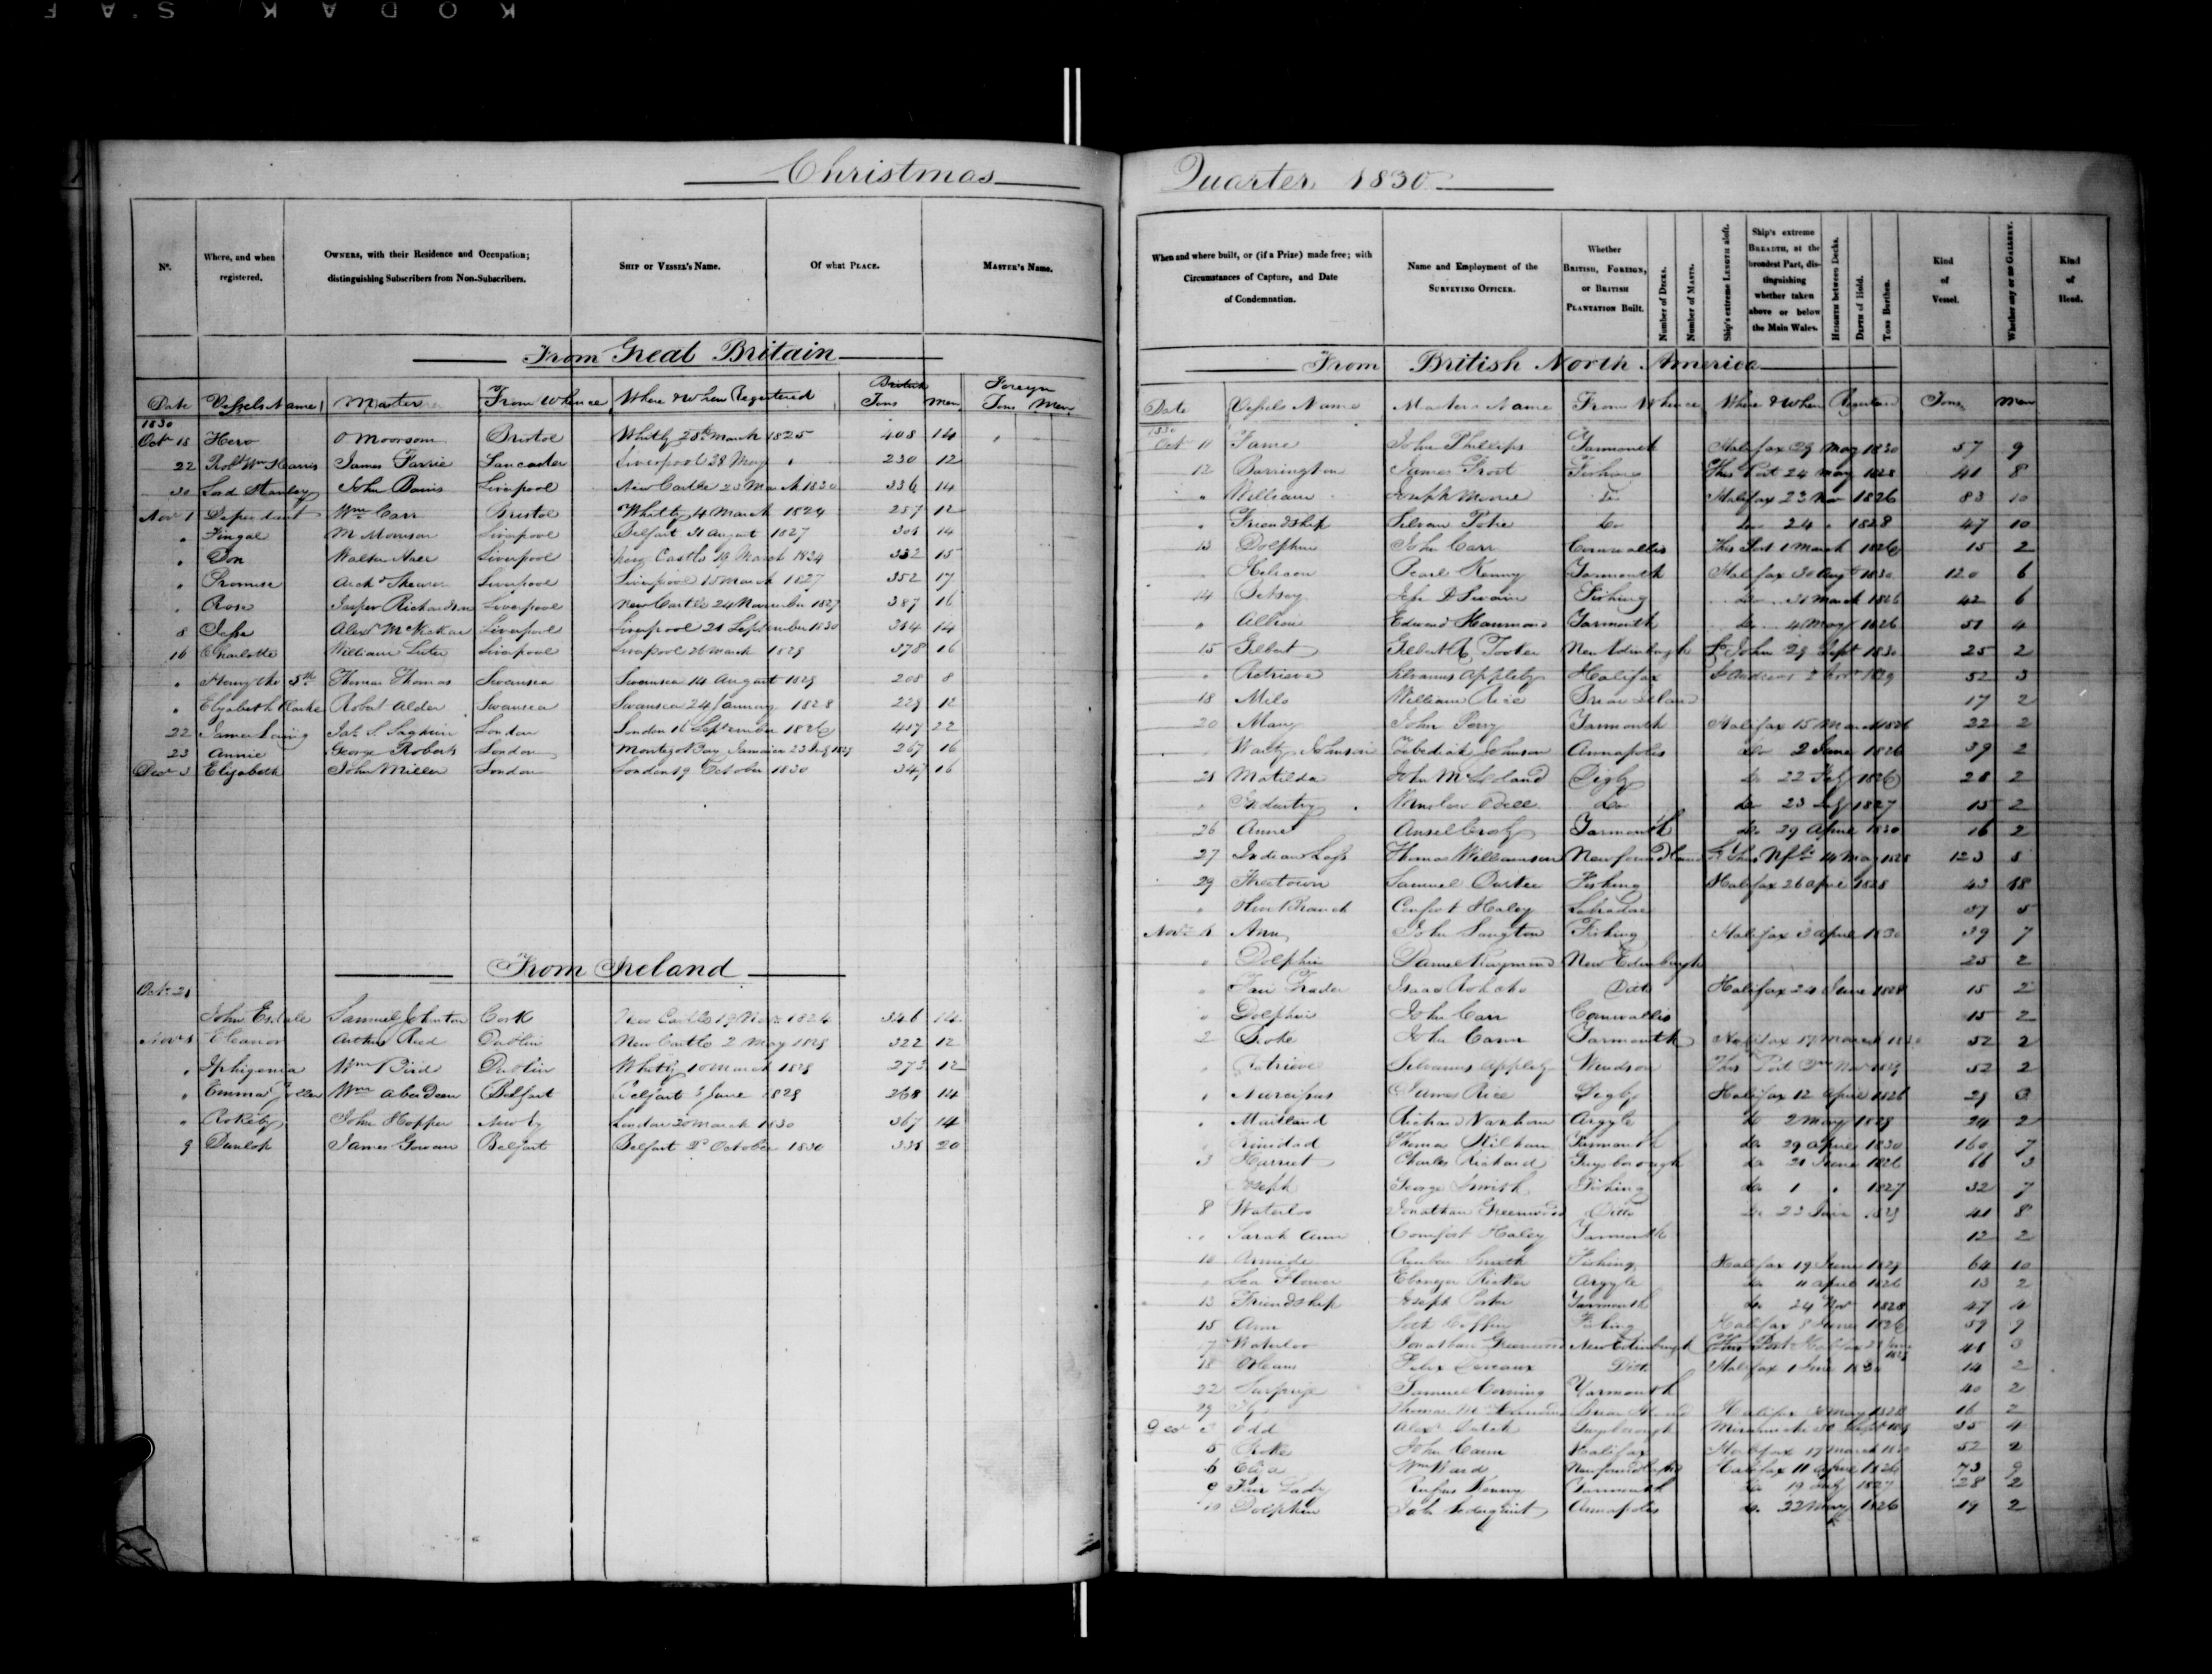 KODAK S.A F
Christmas
Nº.
Where, and when registered.
OWNERS, with their Residence and Occupation; distinguishing Subscribers from Non-Subscribers.
SHIP or VESSEL's Name.
Of what PLACE.
MASTER's Name.
From Great Britain
Date Vessels Name Master From Whence Where & When Registered British Tons Men Foreign Tons Men
1830
Octr 18 Hero O Moorsom Bristol Whitby 28th March 1825 408 14
22 Robt Wm Harris James Farrie Lancaster Liverpool 28 May " 230 12
30 Lord Stanley John Davis Liverpool New Castle 23 March 1830 336 14
Nov 1 Dependent Wm Carr Bristol Whitby 4 March 1824 257 12
" Fingal M Morrison Liverpool Belfast 31 August 1827 301 14
" Don Walter Liverpool New Castle 19 March 1824 332 15
" Promise Archd Shearer Liverpool Liverpool 15 March 1827 352 17
" Rose Jasper Richardson Liverpool New Castle 24 November 1827 387 16
8 Jessie Alexr McVickar Liverpool Liverpool 21 September 1830 314 14
16 Charlotte William Liverpool Liverpool 26 March 1829 378 16
" Henry the 5th Thomas Thomas Swansea Swansea 14 August 1829 208 8
" Elizabeth Clarke Robert Alder Swansea Swansea 24 January 1828 229 12
22 James Laing London London 16 September 1826 417 22
23 Annie George Roberts London Montego Bay Jamaica 23 1829 267 16
Decr 3 Elizabeth John Miller London London 19 October 1830 347 16
From Ireland
Octr 21
John Esdale Samuel Johnston Cork New Castle 19 1824 346 14
Novr 1 Eleanor Arthur Reed Dublin New Castle 2 May 1829 322 12
" Iphigenia Wm Bird Dublin Whitby 10 March 1829 273 12
" Emma Wm Aberdeen Belfast Belfast 5 June 1829 268 14
" Rokeby John Hopper Newry London 20 March 1830 367 14
9 Dunlop James Gowan Belfast Belfast 2d October 1830 331 20
Quarter 1830
When and where built, or (if a Prize) made free; with Circumstances of Capture, and Date of Condemnation.
Name and Employment of the SURVEYING OFFICER.
Whether BRITISH, FOREIGN, or BRITISH PLANTATION Built.
Number of DECKS.
Number of MASTS.
Ship's extreme LENGTH aloft.
Ship's extreme BREADTH, at the broadest Part, distinguishing whether taken above or below the Main Wales.
HEIGHTH between Decks.
DEPTH of Hold.
TONS Burthen.
Kind of Vessel.
Whether any or no GALLERY.
Kind of Head.
From British North America
Date Vessels Name Masters Name From Whence Where & When Registered Tons Men
1830
Oct 11 Fame John Phillips Yarmouth Halifax 29 May 1830 57 9
12 Barrington James Frost Fishing This Port 24 May 1828 41 8
" William Joseph Moore Do Halifax 23 Nov 1826 83 10
" Friendship Do Do 24 " 1828 47 10
13 Dolphin John Carr Cornwallis This Port 1 March 1826 15 2
Pearl Kenny Yarmouth Halifax 30 Augt 1830 120 6
14 Betsey Swain Fishing Do 31 March 1826 42 6
" Albion Edward Hammond Yarmouth Do 4 May 1826 51 4
15 Gilbert Gilbert A Tooker New Edinburgh St John 29 Sept 1830 25 2
" Retrieve Silvanus Appleby Halifax St Andrews 2 1829 52 3
18 Milo William Rice Briar Island 17 2
20 Mary John Perry Yarmouth Halifax 15 March 1826 22 2
Johnson Zebediah Johnson Annapolis Do 2 June 1826 39 2
21 Matilda John McLeland Digby Do 22 July 1826 28 2
" Industry Winslow Odell Do Do 23 July 1827 15 2
26 Anne Ansel Crosby Yarmouth Do 29 April 1830 16 2
27 Indian Lass Thomas Williamson Newfoundland St Johns Nfld 14 May 1828 123 8
29 Freetown Samuel Fishing Halifax 26 April 1828 43 18
" Olive Branch Comfort Haley Labradore 37 5
Novr 1 Ann John Langton Fishing Halifax 3 April 1830 39 7
" Dolphin Daniel Raymond New Edinburgh 25 2
" Fair Trader Isaac Ditto Halifax 24 June 1828 15 2
" Dolphin John Carr Cornwallis 15 2
2 Broke John Cann Yarmouth Halifax 17 March 1830 52 2
" Retrieve Silvanus Appleby Windsor This Port Nov 1829 52 2
" Narcissus James Rice Digby Halifax 12 April 1826 29 3
" Maitland Richard Vanhorn Argyle Do 2 May 1829 24 2
" Trinidad Thomas Hilburn Yarmouth Do 29 April 1830 160 7
3 Harriet Charles Richard Guysborough Do 21 June 1826 66 3
Joseph George Smith Fishing Do 1 " 1827 32 7
8 Waterloo Jonathan Greenwood Ditto Do 23 1829 41 8
" Sarah Ann Comfort Haley Yarmouth 12 2
10 Armide Reuben Smith Fishing Halifax 19 June 1829 64 10
" Sea Flower Ebenezer Ricker Argyle Do 11 April 1826 13 2
13 Friendship Joseph Porter Yarmouth Do 24 Nov 1828 47 4
15 Ann Seth Coffin Fishing Halifax 8 June 1826 59 9
17 Waterloo Jonathan Greenwood New Edinburgh This Port Halifax 23 June 1829 41 3
18 Orleans Felix Ditto Halifax 1 June 1830 14 2
22 Surprize Samuel Corning Yarmouth 40 2
29 Thomas Briar Island Halifax May 1828 16 2
Decr 3 Odd Alexr Guysborough Miramichi 30 Sept 1829 35 4
5 Broke John Cann Halifax Halifax 17 March 1830 52 2
6 Eliza Wm Ward Newfoundland Halifax 11 April 1826 73 9
9 Fair Lady Rufus Kenny Yarmouth Do 19 July 1827 28 2
10 Dolphin John Annapolis Do 22 May 1826 19 2